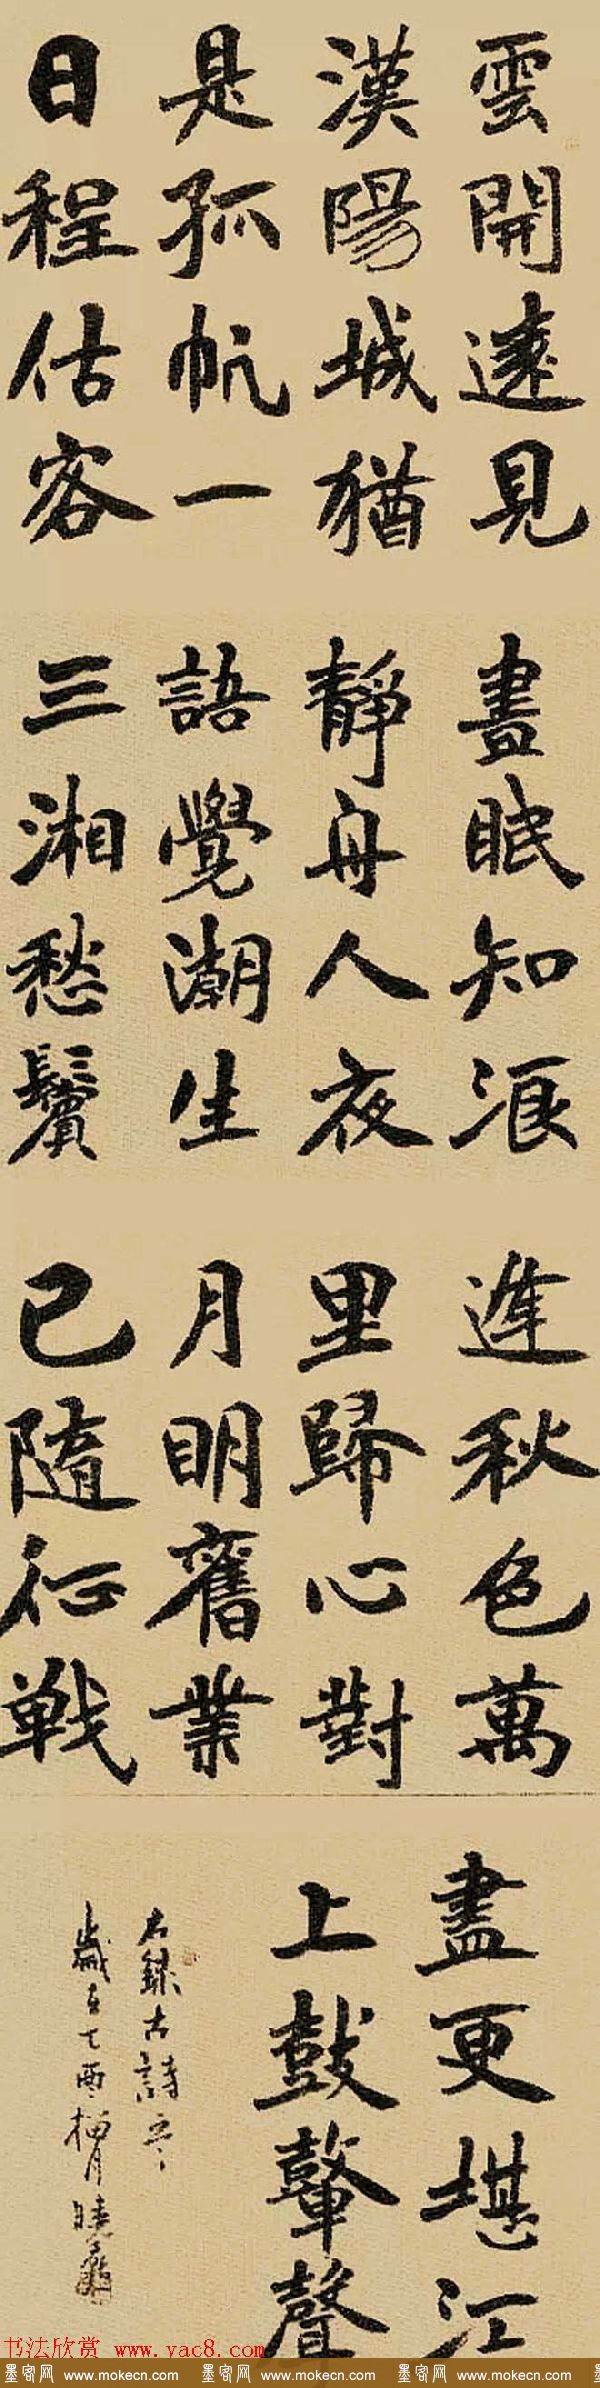 雲開遠見
漢陽城猶
是孤帆一
日程估客
晝眠知浪
靜舟人夜
語覺潮生
三湘愁鬢
逢秋色萬
里歸心對
月明舊業
已隨征戰
盡更堪江
上鼓鼙聲
右錄古詩
歲在酉月
书法欣赏 www.yac8.com
墨客网 www.mokecn.com 墨客网 www.mokecn.com 墨客网 www.mokecn.com